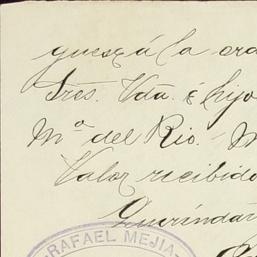 guesrá la ord
Sres. Vda. é hijo
Mª del Rio. M
Valor recibido
Querindar
RAFAEL MEJIA